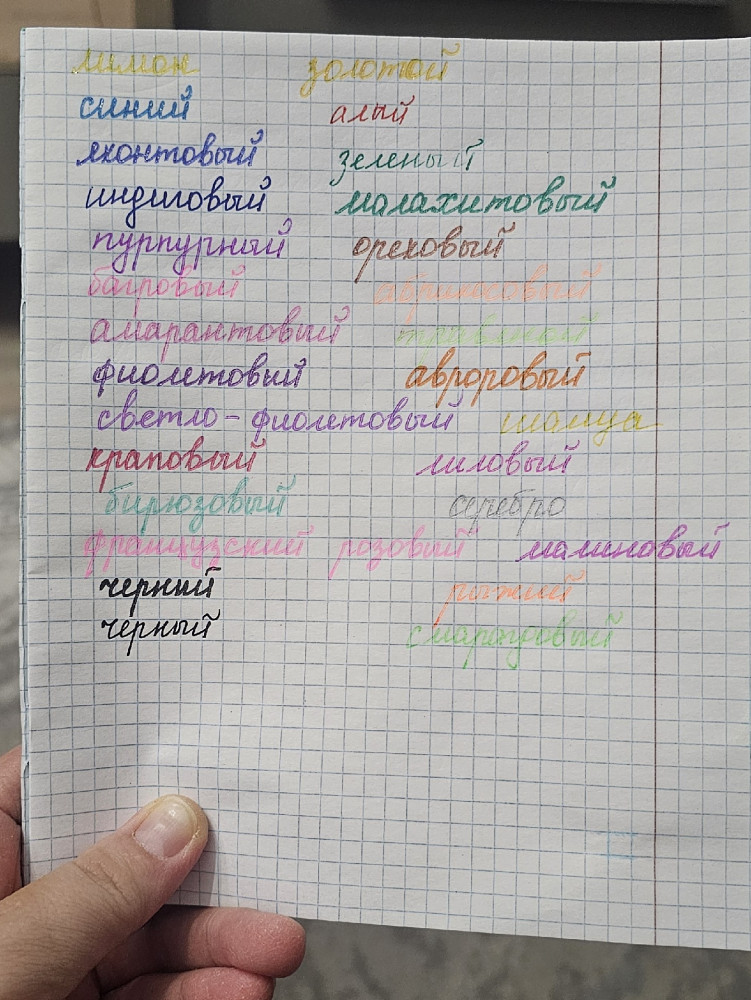 лимон золотой
синий алый
яхонтовый зеленый
индиговый малахитовый
пурпурный ореховый
багровый абрикосовый
амарантовый травяной
фиолетовый авроровый
светло-фиолетовый шамуа
краповый лиловый
бирюзовый серебро
французский розовый малиновый
черный рыжий
черный смарагдовый